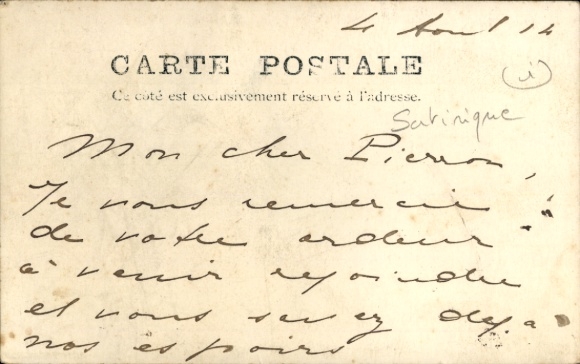 4 Aout 14
CARTE POSTALE
Ce coté est exclusivement réservé à l'adresse.
Satirique
Mon cher Pierron,
Je vous remercie
de votre ardeur
à venir rejoindre
et vous savez deja
nos espoirs